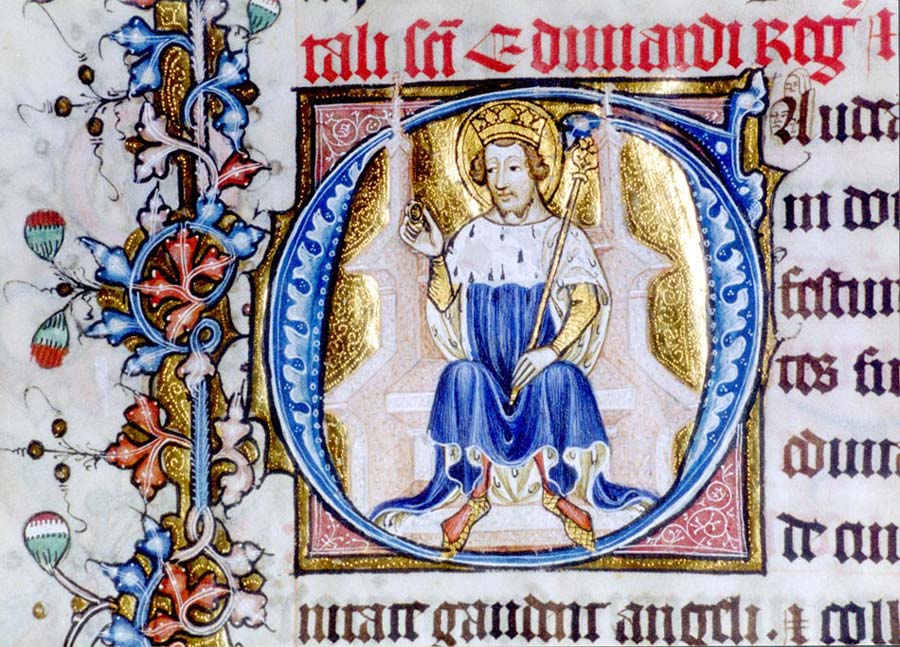 tali sc̄i Edwardi Reg̉
GAudea
in do
festum
tes su
edwar
de cui
nitate gaudent angeli. ⁊ coll